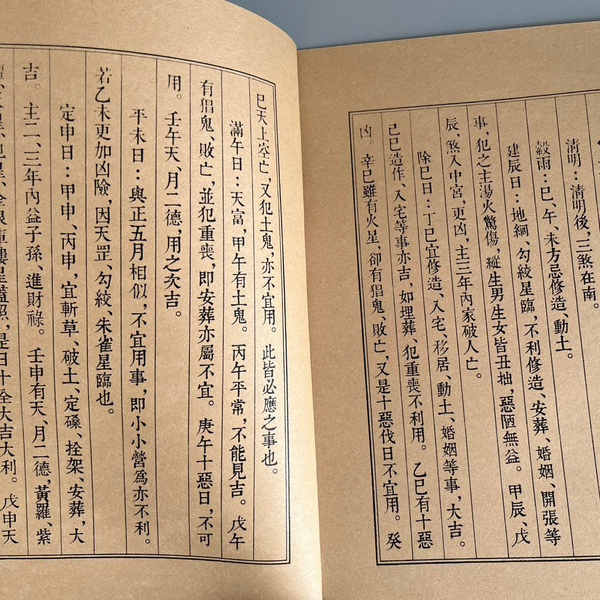 清明：清明後，三煞在南。
穀雨：巳、午、未方忌修造、動土。
建辰日：地網、勾絞星臨，不利修造、安葬、婚姻、開張等
事，犯之主湯火驚傷，縱生男生女皆丑拙，惡陋無益。甲辰、戊
辰，煞入中宮，更凶，主三年內家破人亡。
除巳日：丁巳宜修造、入宅、移居、動土、婚姻等事，大吉。
己巳造作、入宅等事亦吉，如埋葬、犯重喪不利用。乙巳有十惡
凶。辛巳雖有火星，卻有倡鬼、敗亡，又是十惡伐日不宜用。癸
巳天上空亡，又犯土鬼，亦不宜用。此皆必應之事也。
滿午日：天富，甲午有土鬼。丙午平常，不能見吉。戊午
有倡鬼、敗亡，並犯重喪，即安葬亦屬不宜。庚午十惡日，不可
用。壬午天、月二德，用之次吉。
平未日：與正五月相似，不宜用事，即小小營爲亦不利。
若乙未更加凶險，因天罡、勾絞、朱雀星臨也。
定申日：甲申、丙申，宜斬草、破土、定磉、拴架、安葬，大
吉。主二、三年內益子孫、進財祿。壬申有天、月二德，黃羅、紫
蓋照，是日十全大吉大利。戊申天